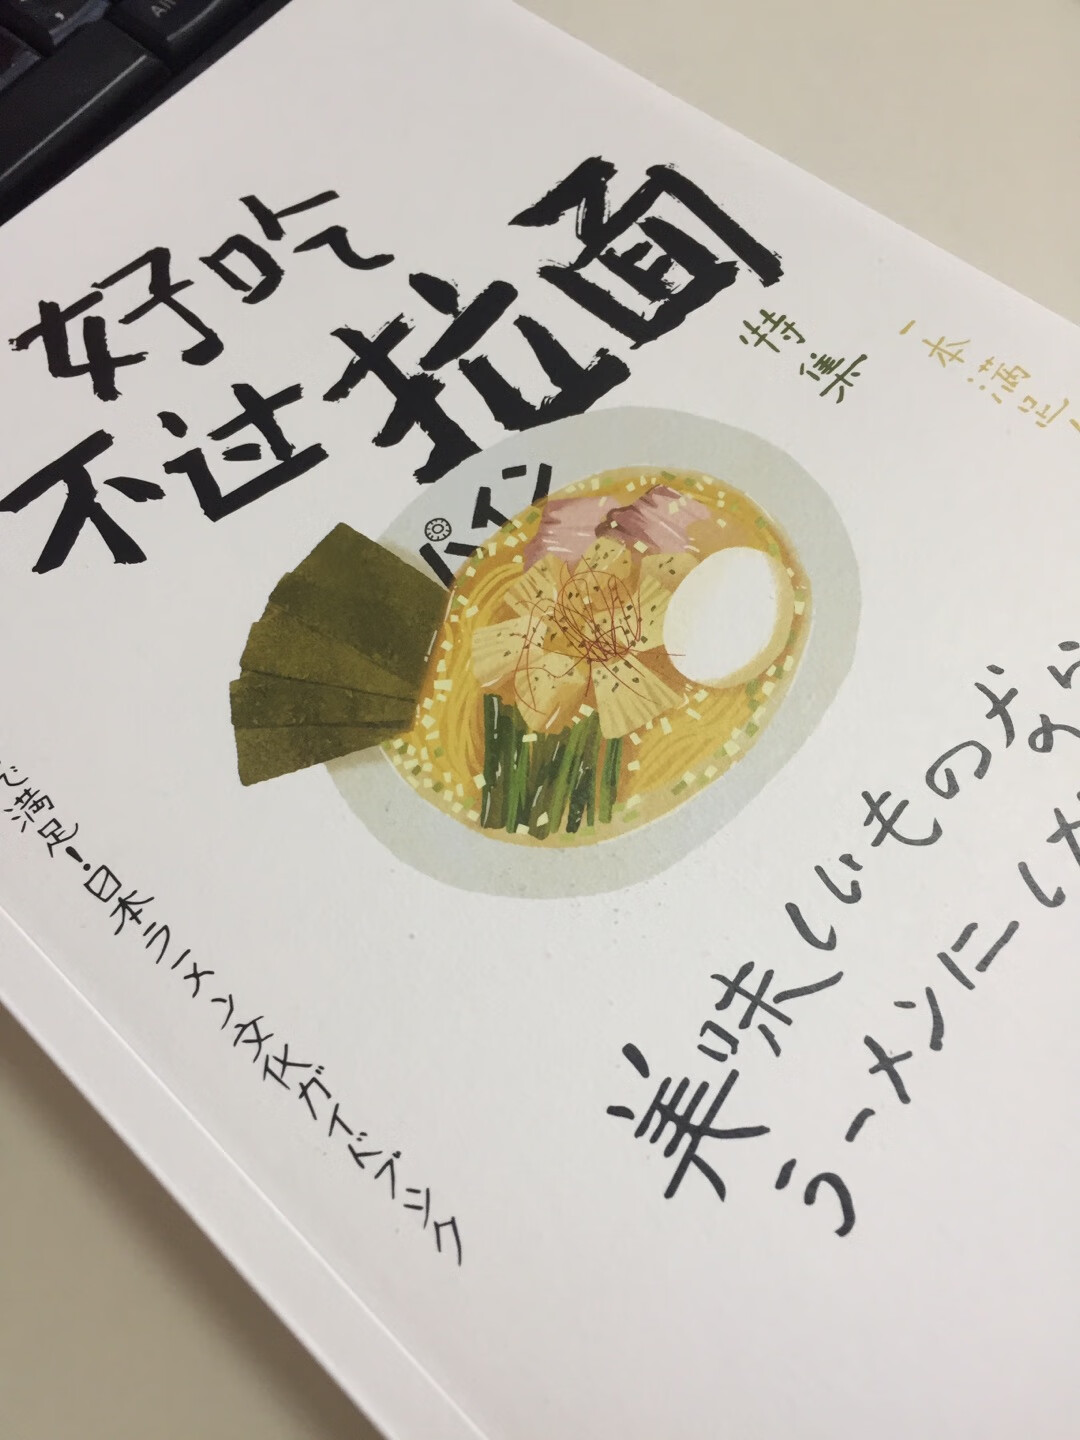 好吃
不过拉面
特集
一本满足
パイン
美味しいものなら
ラーメンに
で満足!日本ラーメン文化ガイドブック